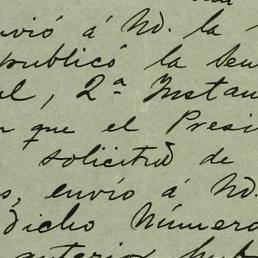 envió á Vd. la
publicó la Sen
al, 2ª Instan
que el Presi
solicitud de
s, envío á Vd.
dicho Número
anterior pub